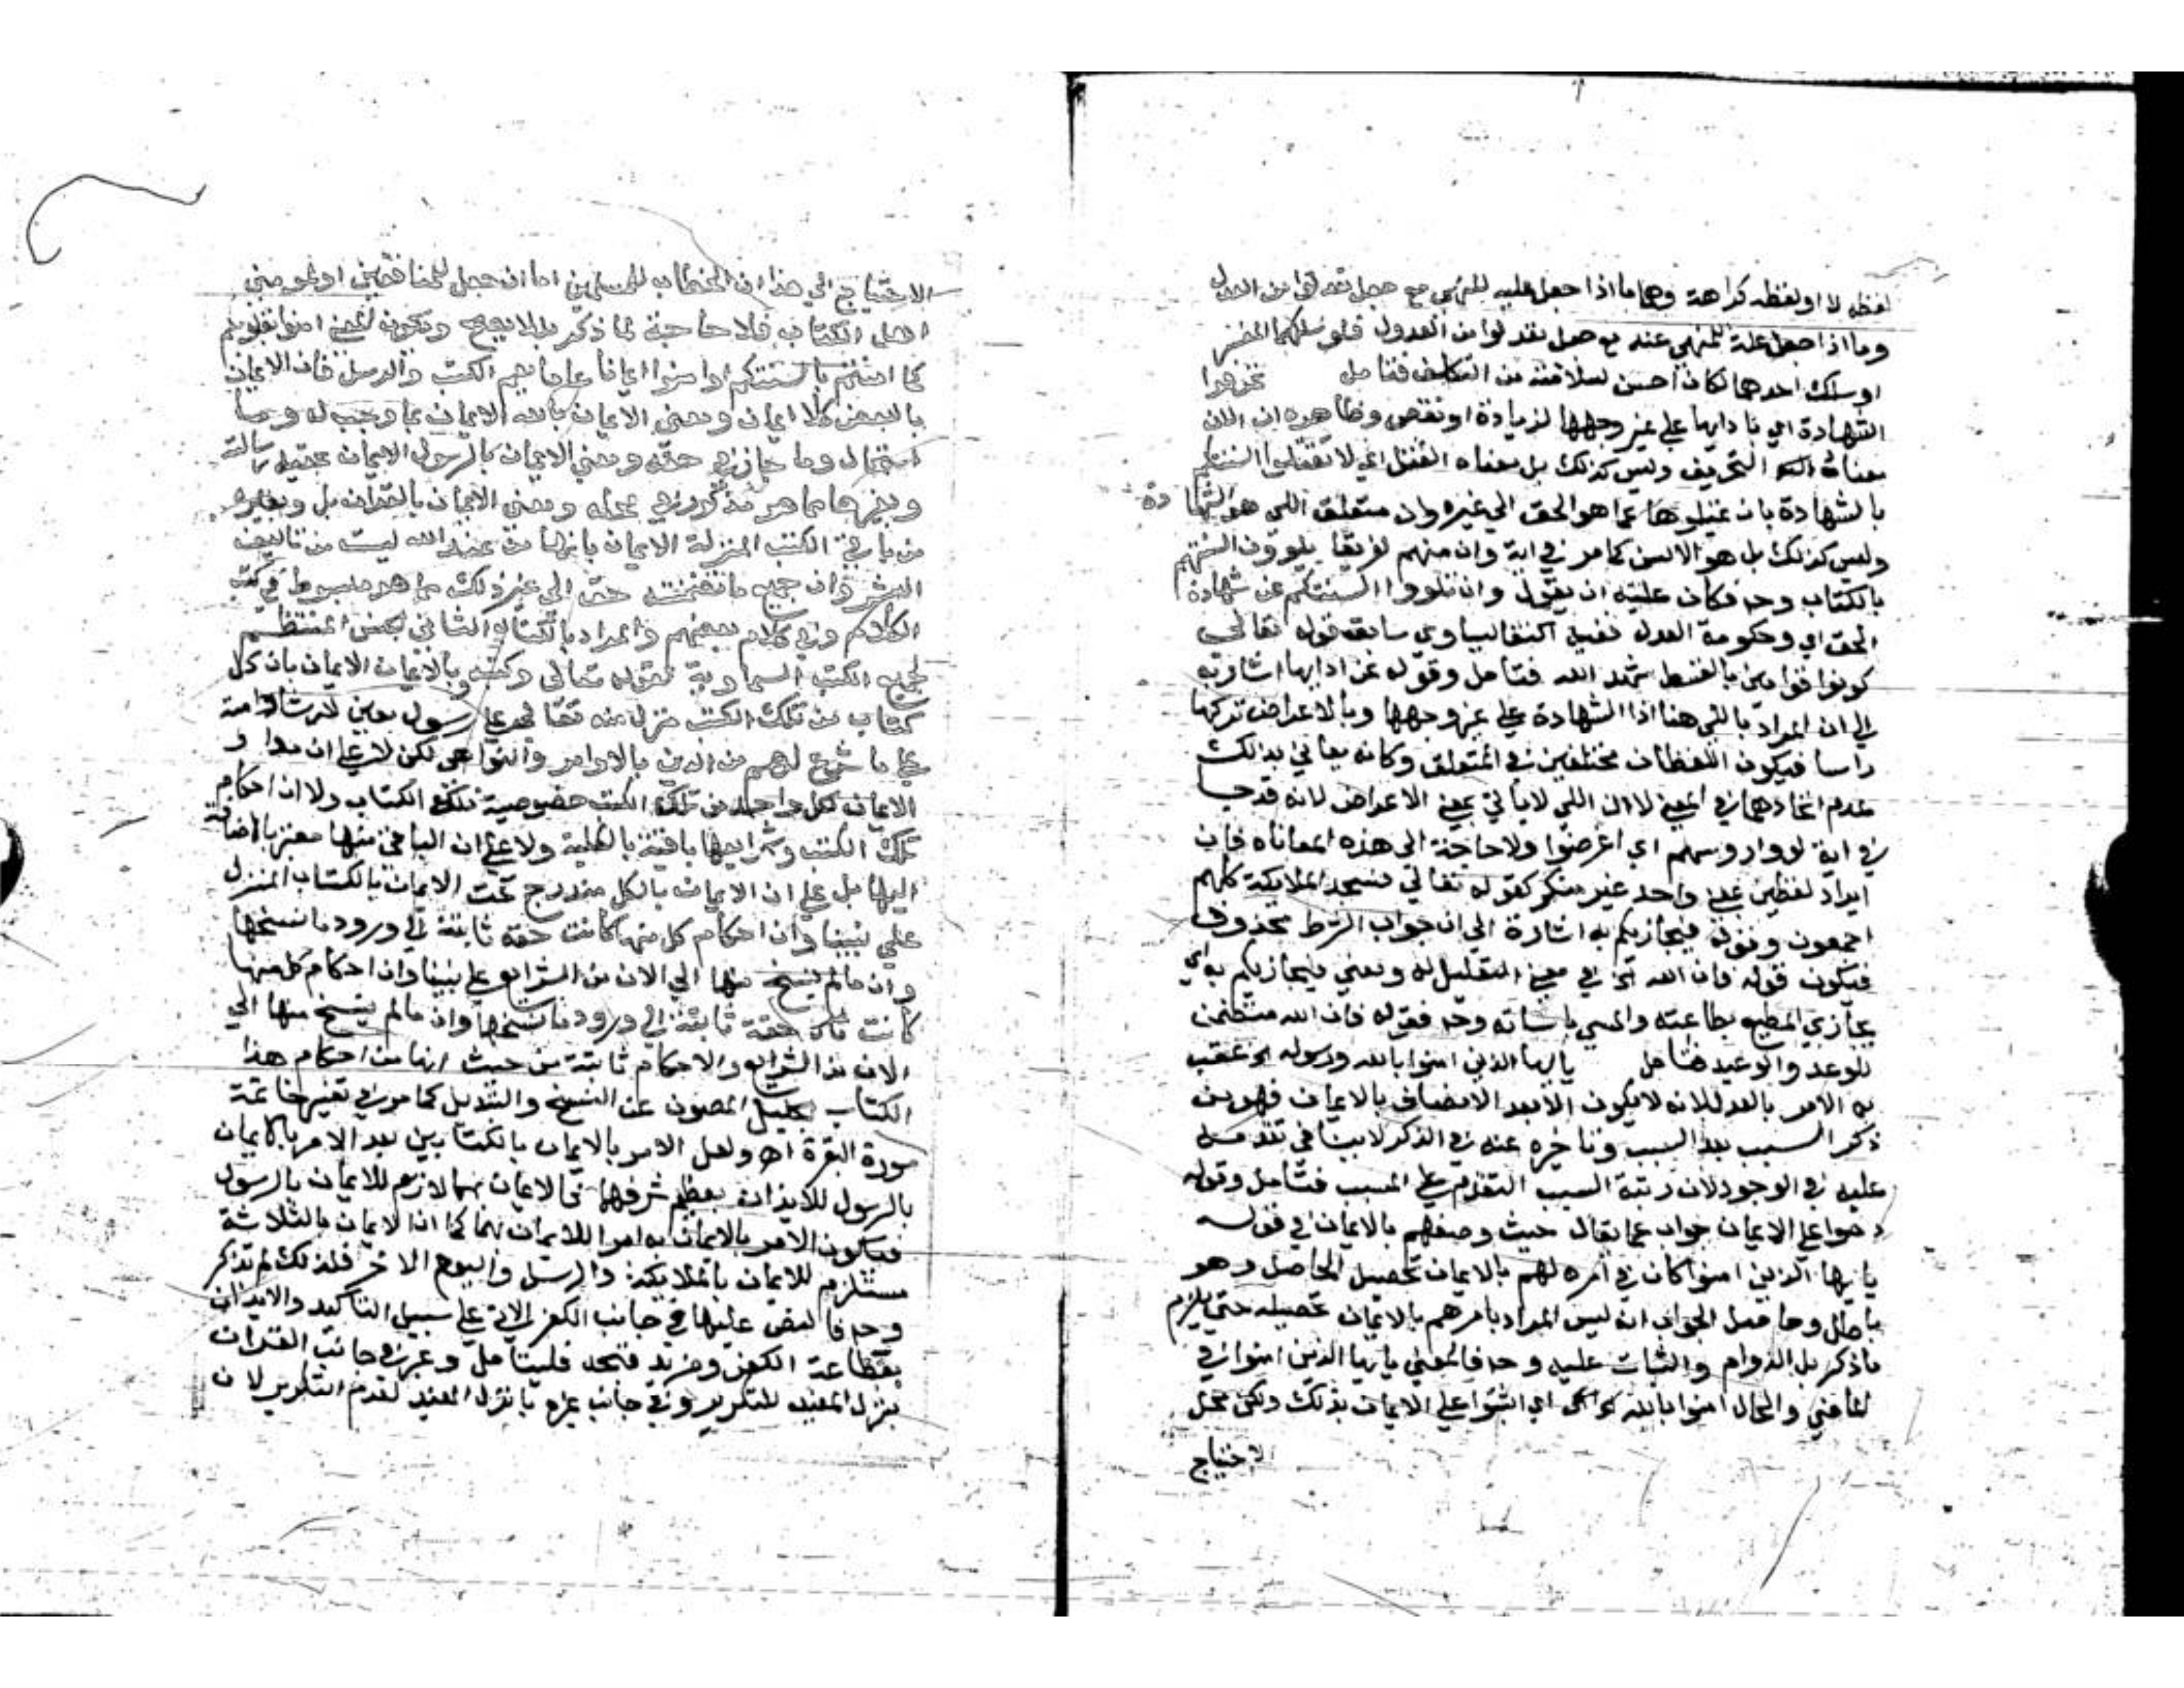 لفظه لا او لفظه كراهة وهاما اذا جعل عليه للنهي مع جعل تعدلوا من العدل
وما اذا جعل علة للمنهي عنه مع جعل تعدلوا من العدول فلو سلكهما المفسر
او سلك احدهما لكان احسن لسلامته من التكلف فتامل تحرفوا
الشهادة اي بادايها علي غير وجهها لزيادة او نقص وظاهره ان اللي
معناه التحريف وليس كذلك بل معناه الفتل اي لا تفتلوا السنتكم
بالشهادة بان تميلوها عما هو الحق الي غيره وان متعلق اللي هو الشهادة
وليس كذلك بل هو الالسن كما مر في اية وان منهم لفريقا يلوون السنتهم
بالكتاب وح فكان عليه ان يقول وان تلووا السنتكم عن شهادة
الحق اي وحكومة العدل ففيه اكتفا لسياق سابقه قوله تعالي
كونوا قوامين بالقسط شهدا لله فتامل وقوله عن ادايها اشار به
الي ان المراد باللي هنا اذا الشهادة علي غير وجهها وبالاعراض تركها
راسا فيكون اللفظان مختلفين في المتعلق وكانه يعاني بذلك
عدم اتحادهما في المعني لا ان اللي لا ياتي بمعني الاعراض لانه قد جا
في اية لووا روسهم اي اعرضوا ولا حاجة الي هذه المعاناه فان
ايراد لفظين بمعني واحد غير منكر كقوله تعالي فسجد الملايكة كلهم
اجمعون وقوله فيجازيكم به اشارة الي ان جواب الشرط محذوف
فيكون قوله فان الله الخ في معني التعليل له ومعني فيجازيكم به اي
يجازي المطيع بطاعته والمسي باساته وح فقوله فان الله متضمن
للوعد والوعيد فتامل يا ايها الذين امنوا بالله ورسوله الخ عقب
به الامر بالعدل لانه لا يكون الا بعد الاتصاف بالايمان فهو من
ذكر السبب بعد المسبب وتاخيره عنه في الذكر لا ينافي تقدمه
عليه في الوجود لان رتبة السبب التقدم علي المسبب فتامل وقوله
دوموا علي الايمان جواب عما يقال حيث وصفهم بالايمان في قوله
يا ايها الذين امنوا كان في امره لهم بالايمان تحصيل الحاصل وهو
باطل وحاصل الجواب انه ليس المراد بامرهم بالايمان تحصيله حتي يلزم
ماذكر بل الدوام والثبات عليه وح فالمعني يا ايها الذين امنوا في
الماضي والحال امنوا بالله اي اثبتوا علي الايمان بذلك ولكن محل
الاحتياج
الاحتياج الي هذا ان الخطاب للمسلمين اما ان جعل للمنافقين او لمومني
اهل الكتاب فلا حاجة لما ذكر بل لا يصح ويكون المعني امنوا بقلوبكم
كما امنتم بالسنتكم او امنوا ايمانا عاما يعم الكتب والرسل فان الايمان
بالبعض كلا ايمان ومعني الايمان بالله الايمان بما وجب له وما
استحال وما جاز في حقه ومعني الايمان بالرسول الايمان بحقية رسالته
وبغيرها مما هو مذكور في محله ومعني الايمان بالقران بل وبغيره
من باقي الكتب المنزلة الايمان بانها من عند الله ليست من تاليف
البشر وان جميع ما تضمنته حق الي غير ذلك مما هو مبسوط في كتب
الكلام وفي كلام بعضهم والمراد بالكتاب الثاني الجنس المنتظم
لجميع الكتب السماوية لقوله تعالي وكتبه وبالايمان الايمان بان كل
كتاب من تلك الكتب منزل منه تعالي علي رسول معين لارشاد امته
علي ما شرع لهم من الدين بالاوامر والنواهي لكن لا علي ان مدار
الايمان لكل واحد من تلك الكتب خصوصية ذلك الكتاب ولا ان احكام
تلك الكتب وشرايعها باقية بالكلية ولا علي ان الباقي منها معتبر بالاضافة
اليها بل علي ان الايمان بالكل مندرج تحت الايمان بالكتاب المنزل
علي نبينا وان احكام كل منها كانت حقة ثابتة الي ورود ما نسخها
وان مالم ينسخ منها الي الان من الشرايع علي نبينا وان احكام كل منها
كانت حقة ثابتة الي ورود ما نسخها وان مالم ينسخ منها الي
الان من الشرايع والاحكام ثابتة من حيث انها من احكام هذا
الكتاب الجليل المصون عن النسخ والتبديل كما مر في تفسير خاتمة
سورة البقرة اهـ ولعل الامر بالايمان بالكتابين بعد الامر بالايمان
بالرسول للايذان بعظم شرفهما فالايمان بهما لازم للايمان بالرسول
فيكون الامر بالايمان به امرا للايمان بهما كما ان الايمان بالثلاثة
مستلزم للايمان بالملايكة والرسل واليوم الاخر فلذلك لم تذكر
وح فالنص عليها في جانب الكفر الاتي علي سبيل التاكيد والايذان
بفظاعة الكفر ومزيد قبحه فليتامل وعبر في جانب القران
بنزل المفيد للتكرير وفي جانب غيره بانزل المفيد لعدم التكرير لان